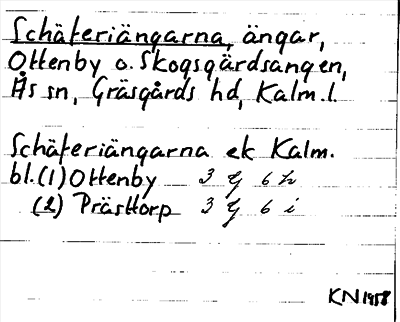 Schäferiängarna, ängar,
Ottenby o. Skogsgärdsangen,
Ås sn, Gräsgårds hd, Kalm. l.
Schäferiängarna ek Kalm.
bl. (1) Ottenby 3 G 6 h
(2) Prästtorp 3 G 6 i
KN 1958